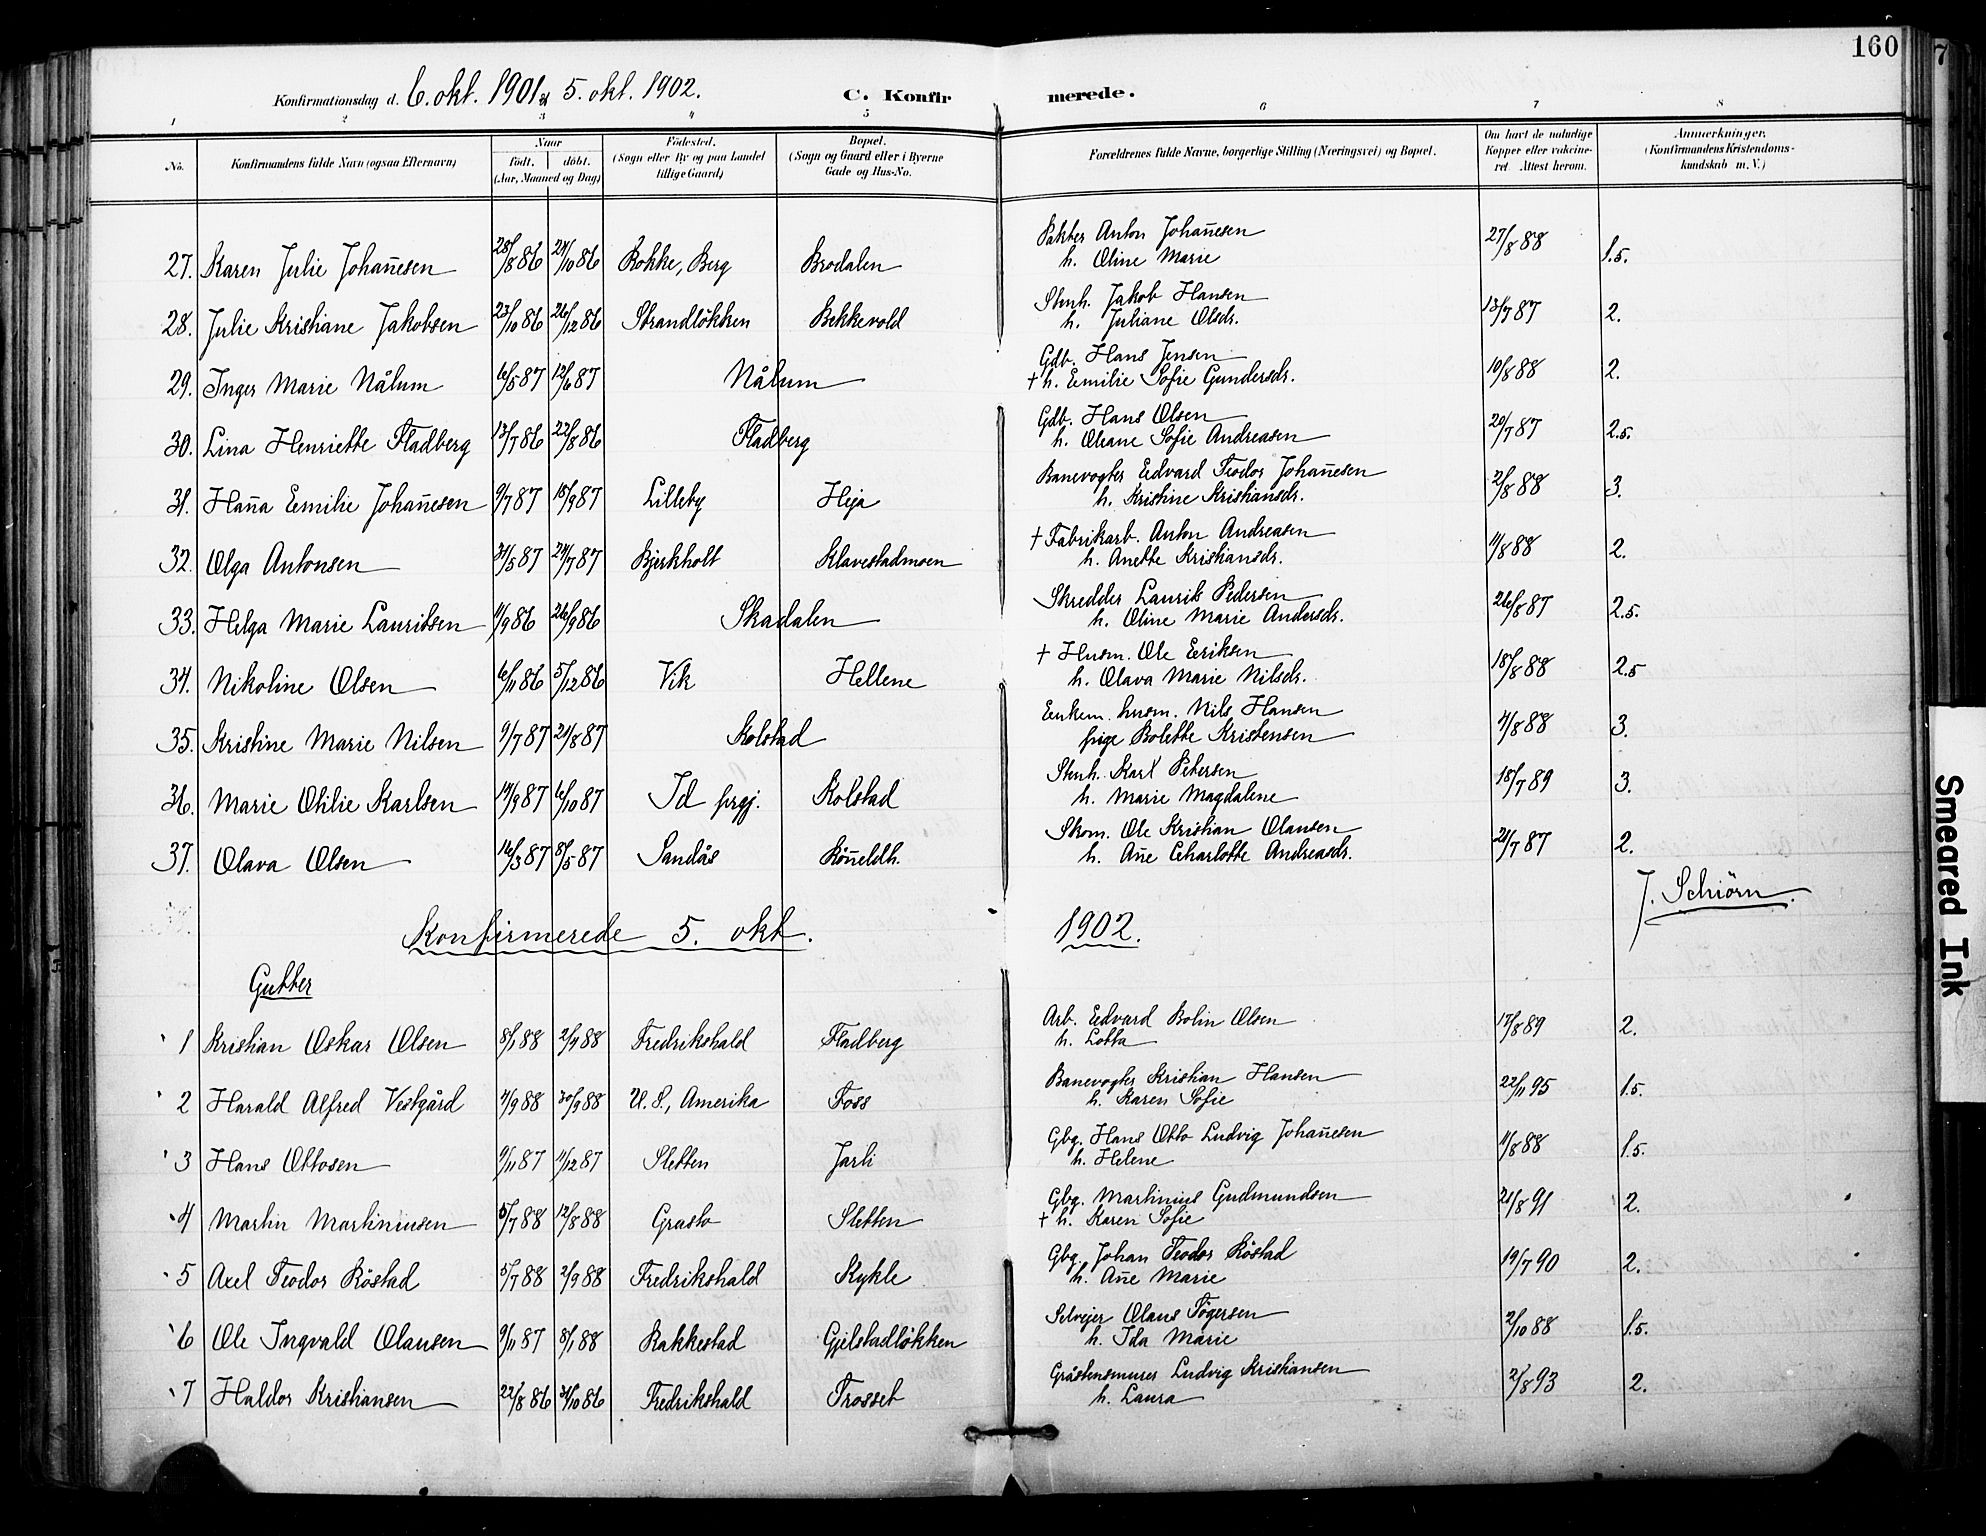 160
Konfirmationsdag d. 6. okt. 1901 & 5. okt. 1902. C. Konfirmerede.
1 2 3 4 5 6 7 8
No. Konfirmandens fulde Navn (ogsaa Efternavn) Naar født. døbt. (Aar, Maaned og Dag) Fødested. (Sogn eller By og paa Landet tillige Gaard) Bopæl. (Sogn og Gaard eller i Byerne Gade og Hus-No. Forældrenes fulde Navne, borgerlige Stilling (Næringsvei) og Bopæl. Om havt de naturlige Kopper eller vakcineret. Attest herom. Anmerkninger. (Konfirmandens Kristendomskundskab m. V.)
27. Karen Julie Johan̄esen 28/8 86 24/10 86 Rokke, Berg Brodalen Pakter Anton Johan̄esen 27/8 88 1.5.
h. Oline Marie
28. Julie Kristiane Jakobsen 23/10 86 26/12 86 Strandløkken Bekkevold Stnh. Jakob Hansen 13/7 87 2.
h. Juliane Olsdr.
29. Inger Marie Nålum 6/5 87 12/6 87 Nålum Gdb. Hans Jensen 10/8 88 2.
† h. Emilie Sofie Gundersdr.
30. Lina Henriette Fladberg 13/7 86 22/8 86 Fladberg Gdb. Hans Olsen 20/7 87 2.5.
h. Oleane Sofie Andreasen
31. Han̄a Emilie Johan̄esen 9/7 87 18/9 87 Lilleby Heja Banevogter Edvard Teodor Johan̄esen 2/8 88 3.
h. Kristine Kristiansdr.
32. Olga Antonsen 31/5 87 24/7 87 Bjerkholt Klavestadmoen † Fabrikarb. Anton Andreasen 11/8 88 2.
h. Anette Kristiansdr.
33. Helga Marie Lauritsen 11/9 86 26/9 86 Skadalen Skredder Laurits Pedersen 26/8 87 2.5.
h. Oline Marie Andersdr.
34. Nikoline Olsen 6/11 86 5/12 86 Vik Hellene † Husm. Ole Eriksen 18/8 88 2.5
h. Olava Marie Nilsdr.
35. Kristine Marie Nilsen 9/7 87 21/8 87 Kolstad Enkem. husm. Nils Hansen 4/8 88 3.
pige Bolette Kristensen
36. Marie Otilie Karlsen 14/9 87 6/10 87 Id prgj. Kolstad Stnh. Karl Petersen 18/7 89 3.
h. Marie Magdalene
37. Olava Olsen 16/3 87 8/5 87 Sandås Rön̄eldh. Skom. Ole Kristian Olausen 21/7 87 2.
h. An̄e Charlotte Andreasdr.
J. Schiörn.
Konfirmerede 5. okt. 1902.
Gutter
1 Kristian Oskar Olsen 8/1 88 2/4 88 Fredrikshald Fladberg Arb. Edvard Bolin Olsen 17/8 89 2.
h. Lotta
2 Harald Alfred Vestgård 4/9 88 30/9 88 U. S., Amerika Foss Banevogter Kristian Hansen 22/11 95 1.5.
h. Karen Sofie
3 Hans Ottosen 9/11 87 11/12 87 Sletten Jarli Gbg. Hans Otto Ludvig Johan̄esen 11/8 88 1.5.
h. Helene
4 Martin Martiniusen 5/7 88 12/8 88 Grasto Sletten Gbg. Martinius Gudmundsen 21/8 91 2.
† h. Karen Sofie
5 Axel Teodor Röstad 5/7 88 2/9 88 Fredrikshald Kykle Gbg. Johan Teodor Röstad 19/7 90 2.
h. An̄e Marie
6 Ole Ingvald Olausen 9/11 87 8/1 88 Rakkestad Gjelstadløkken Selvejer Olaus Tögersen 2/10 88 1.5.
h. Ida Marie
7 Haldor Kristiansen 22/8 86 31/10 86 Fredrikshald Trosset Gråstensmurer Ludvig Kristiansen 2/8 93 2.
h. Laura
Smeared Ink